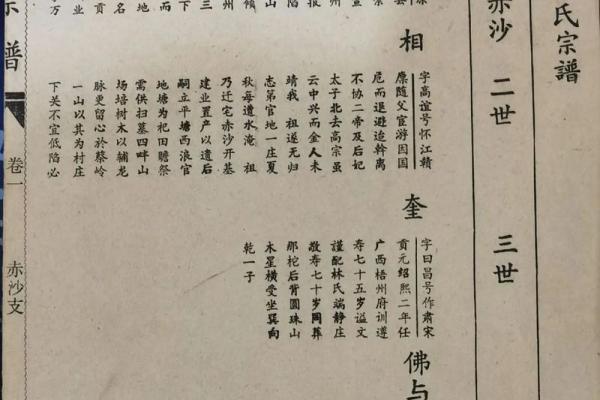 氏宗譜
赤沙 二世 三世
相
字高誼号怀江赣
廪随父宦游因国
危而退避迨斡离
不协二帝及后妃
太子北去高宗虽
云中兴而金人未
靖我 祖遂无归
志第官地一庄夏
秋每遭水淹 祖
乃迁宅赤沙开基
建业置产以遗后
嗣立平塘西浪官
地塘为祀田赡祭
需供扫墓四畔山
场培树木以辅龙
脉更留心於蔡岭
一山以其为村庄
下关不宜低陷必
奎
字曰昌号作肃宋
贡元绍熙二年任
广西梧州府训遵
寿七十五岁谥文
谨配林氏端静庄
敬寿七十岁同葬
那柁后背圆珠山
木星横受坐巽向
乾一子
佛与
宗譜
卷一
赤沙支